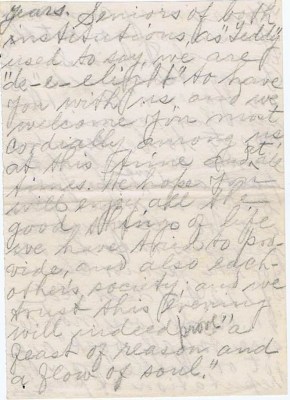 years. Seniors of both
institutions, as "Teddy"
used to say, we are
"de-e-elighted" to have
you with us, and we
welcome you most
cordially among us
at this time and at all
times. We hope you
will enjoy all the
good things of life
we have tried to pro-
vide, and also each
others society; and we
trust this evening
will indeed prove "a
feast of reason and
a flow of soul."